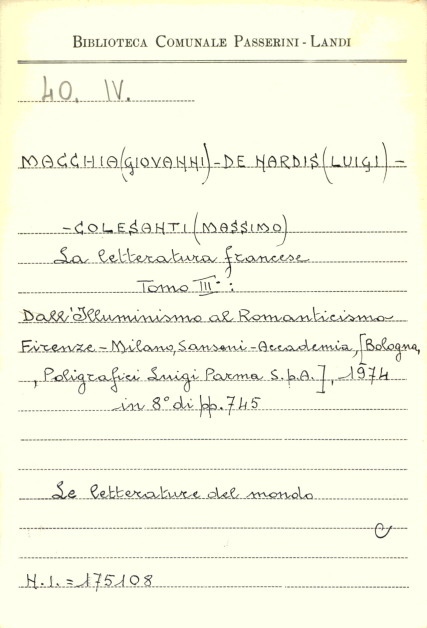 BIBLIOTECA COMUNALE PASSERINI - LANDI
40. IV.
MACCHIA (GIOVANNI) - DE NARDIS (LUIGI) -
- COLESANTI (MASSIMO)
La letteratura francese
Tomo III°:
Dall'Illuminismo al Romanticismo
Firenze - Milano, Sansoni - Accademia, [Bologna,
, Poligrafici Luigi Parma S.p.A.], 1974
in 8° di pp. 745
Le letterature del mondo
C
N.I. = 175108